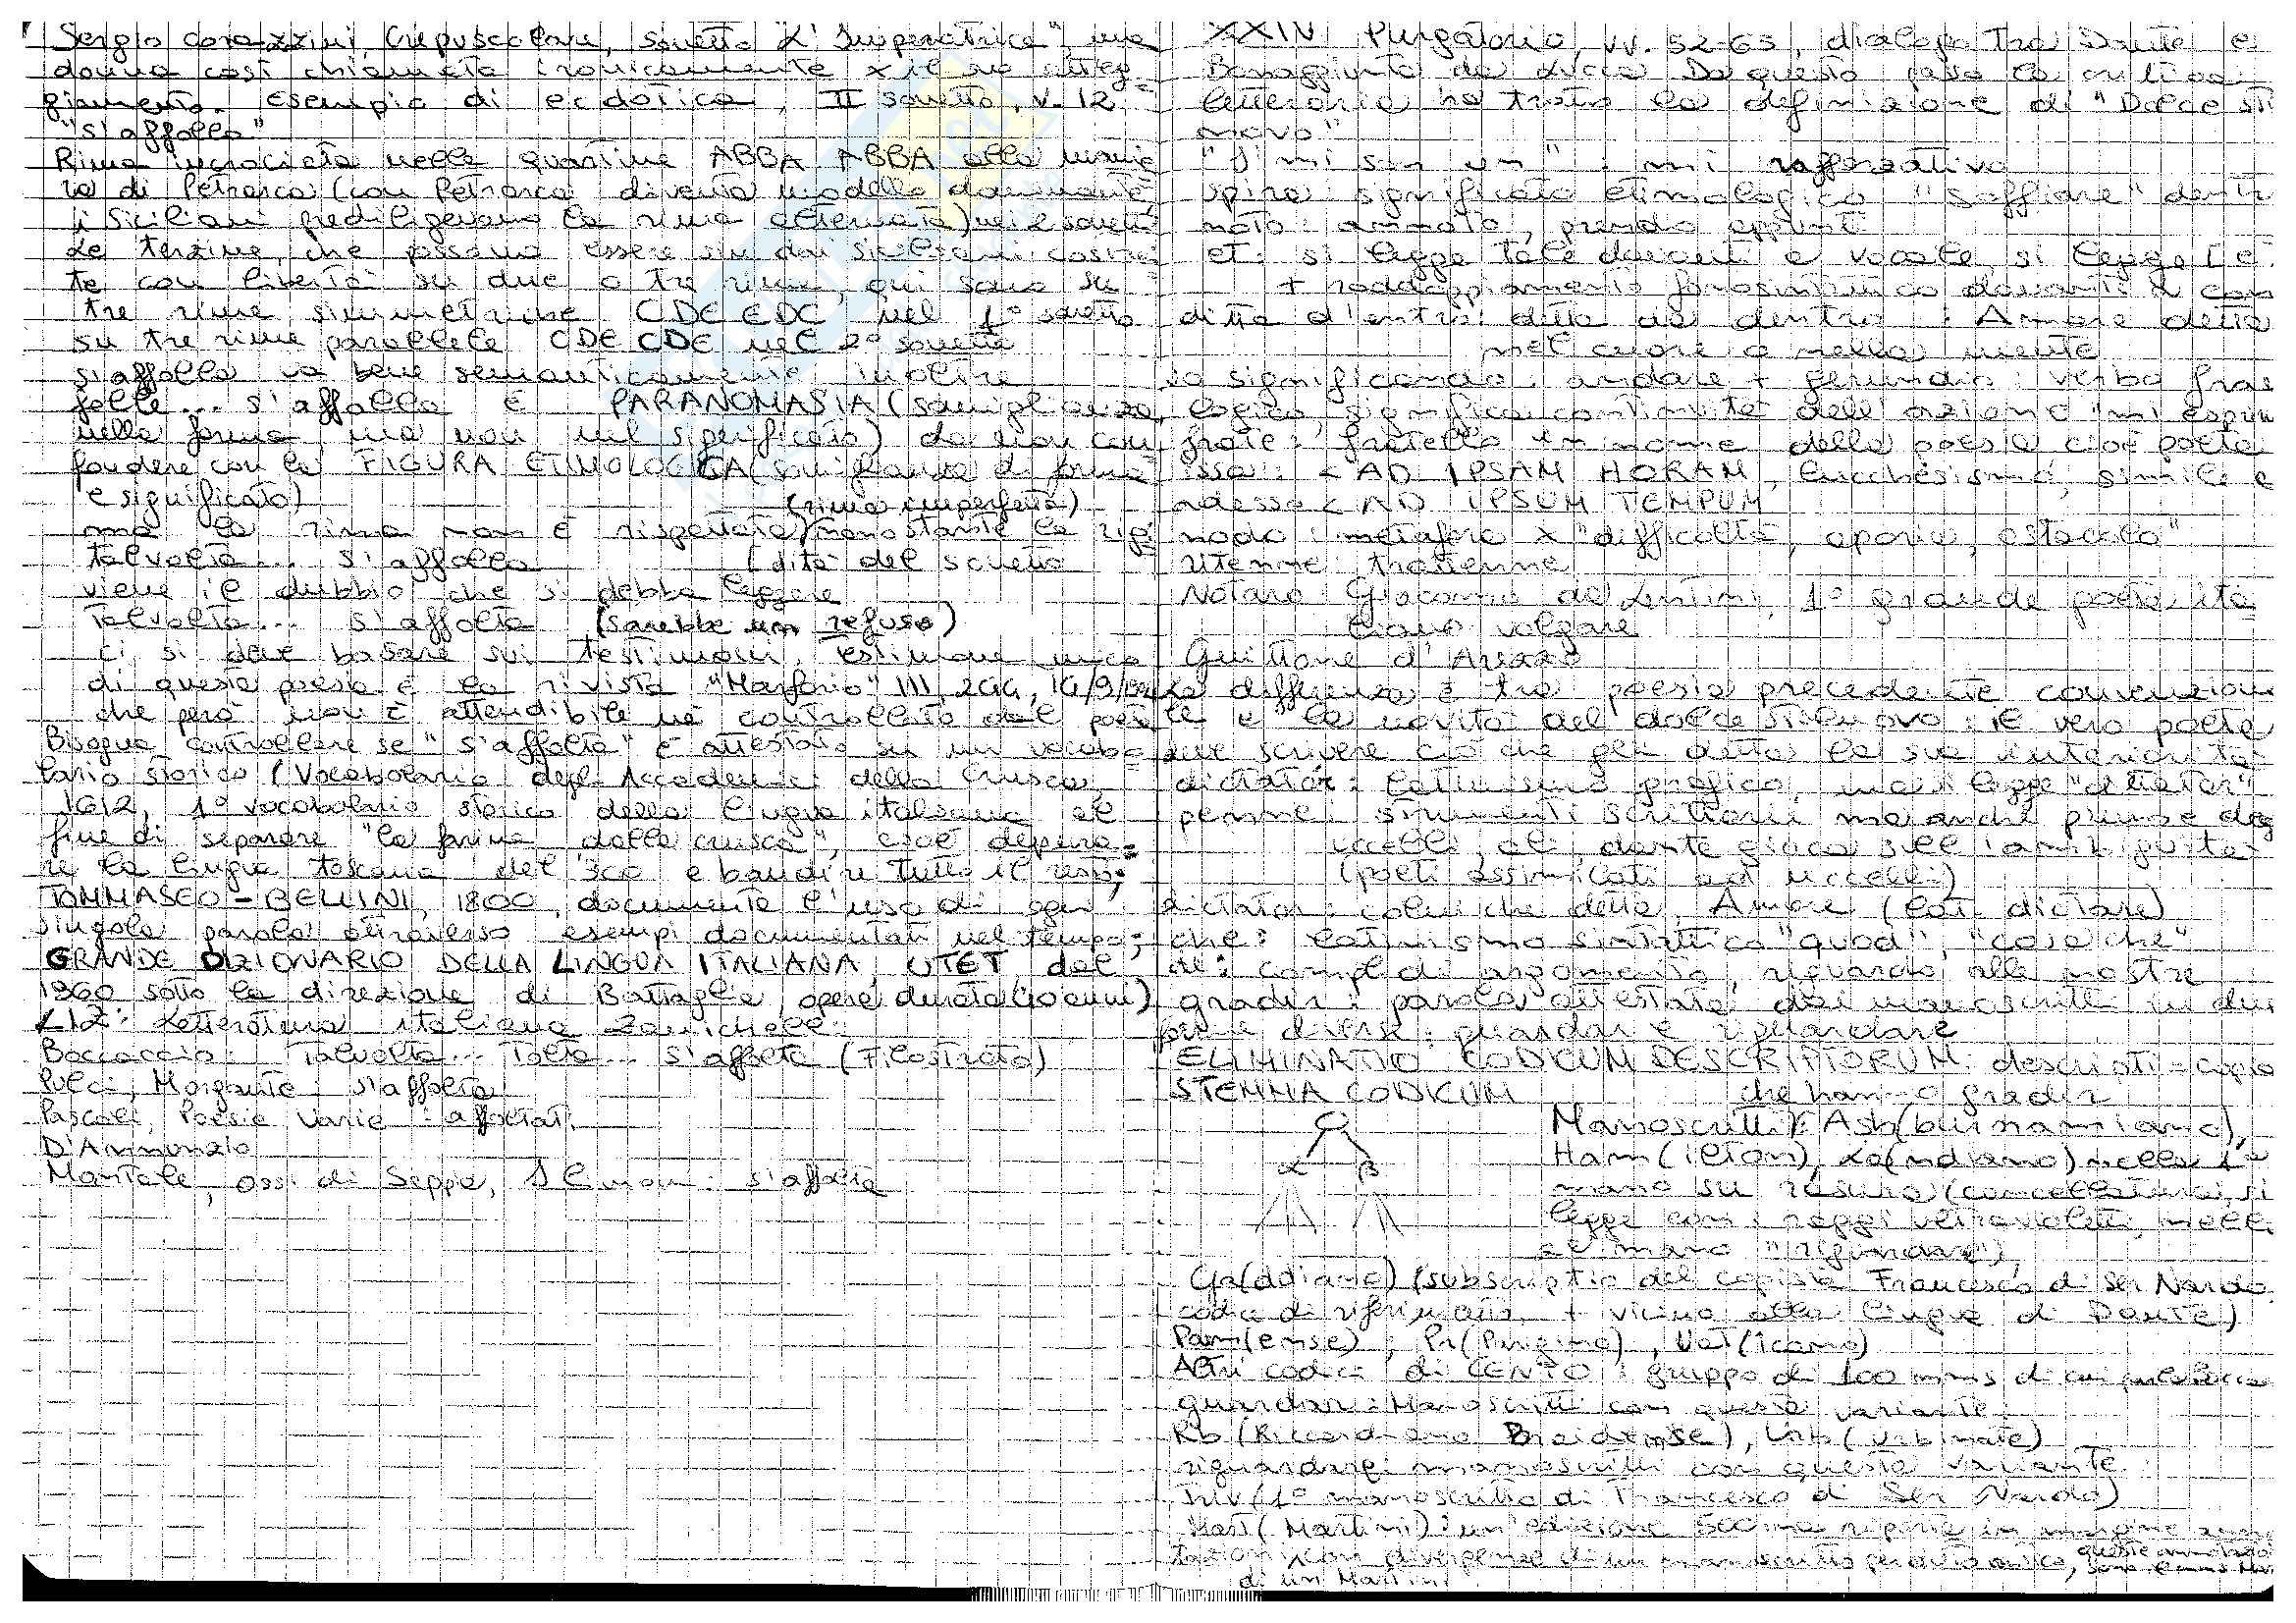 Sergio Corazzini, Crepuscolare, sonetto "L'Imperatrice", una
donna così chiamata ironicamente x il suo atteg=
giamento. Esempio di ecdotica, II sonetto, v. 12
"s'affolla"
Rima incrociata nelle quartine ABBA ABBA alla manie
ra di Petrarca (con Petrarca diventa modello dominante,
i Siciliani prediligevano la rima alternata) nei 2 sonetti
Le terzine, che possono essere sin dai siciliani costrui
te con libertà su due o tre rime, qui sono su
tre rime simmetriche CDE EDC nel 1° sonetto
su tre rime parallele CDE CDE nel 2° sonetto
s'affolla va bene semanticamente inoltre
folle... s'affolla è PARANOMASIA (somiglianza
nella forma ma non nel significato) da non con
fondere con la FIGURA ETIMOLOGICA (somiglianza di forma
e significato)
(rima imperfetta)
ma la rima non è rispettata, nonostante la rigi
talvolta... s'affolla (dità del sonetto
viene il dubbio che si debba leggere
Talvolta... s'affolta (sarebbe un refuso)
ci si deve basare sui testimoni. Testimone unico
di questa poesia è la rivista "Marforio" III, 244,
che però non è attendibile né controllata dal poeta
Bisogna controllare se "s'affolta" è attestato su un vocabo
lario storico (Vocabolario degli Accademici della Crusca,
1612, 1° vocabolario storico della lingua italiana al
fine di separare "la farina dalla crusca", cioè depura=
re la lingua toscana del '300 e bandire tutto il resto;
TOMMASEO-BELLINI, 1800, documenta l'uso di ogni
singola parola attraverso esempi documentati nel tempo;
GRANDE DIZIONARIO DELLA LINGUA ITALIANA UTET del
1960 sotto la direzione di Battaglia, opera durata (40 anni)
LIZ: Letteratura italiana Zanichelli:
Boccaccio: Talvolta... Tolta... s'affolta (Filostrato)
Pulci, Morgante: s'affolta
Pascoli, Poesie Varie: affoltati
D'Annunzio
Montale, Ossi di Seppia, I limoni: s'affolta
XXIV Purgatorio, vv. 52-63, dialogo tra Dante e
Bonaggiunta da Lucca Da questo passo la critica
letteraria ha tratto la definizione di "Dolce sti
novo"
"I' mi son un": mi rafforzativo
spira: significato etimologico "soffiare" dentr
noto: annoto, prendo appunti
et: si legge tale davanti a vocale, si legge [e
+ raddoppiamento fonosintattico davanti a con
ditta d'entro: detta da dentro: Amore detta
nel cuore o nella mente
vo significando: andare + gerundio: verbo fras
logico, significa continuità dell'azione "mi esprim
frate: fratello in nome della poesia cioè poeta
issa: < AD IPSAM HORAM, lucchesismo, simile a
adesso < AD IPSUM TEMPUM
nodo: metafora x "difficoltà, aporia, ostacolo"
ritenne: trattenne
Notaro Giacomo da Lentini, 1° grande poeta ita
liano volgare
Guittone d'Arezzo
La differenza è tra poesia precedente convenzion
le e la novità del dolce stil novo: il vero poeta
deve scrivere ciò che gli detta la sua interiorità
dictator: latinismo grafico, ma si legge "dittator"
penne: strumenti scrittorii ma anche piume deg
uccelli, ali, Dante gioca sull'ambiguità
(poeti assimilati ad uccelli)
dictator: colui che detta, Amore (lat. dictare)
che: latinismo sintattico "quod", "cioè che"
di: compl. di argomento, riguardo alle nostre
gradir: parola attestata dai manoscritti in due
forme diverse: guardar e riguardare
ELIMINATIO CODICUM DESCRIPTORUM: descripti = copia
STEMMA CODICUM
che hanno gradir
Manoscritti: Ash(burnamiano),
α β
Ham(ilton), La(ndiano) nella 1ª
mano su rasura (cancellatura, si
legge con i raggi ultravioletti, nella
2ª mano "riguardare"),
Ga(ddiano) (subscriptio del copista Francesco di Ser Nardo,
codice di riferimento + vicino alla lingua di Dante)
Parm(ense), Pr(Parigino), Vat(icano)
Altri codici di CENTO: gruppo di 100 mms di cui
guardar: Manoscritti con questa variante:
Rb (Riccardiano Braidense), Urb(Urbinate)
riguardar: manoscritti con questa variante:
Triv (1° manoscritto di Francesco di Ser Nardo)
Mart(Martini): un'edizione 500ina riporta in margine anno
tazioni con divergenze di un manoscritto perduto antico, queste annotazioni
di un Martini